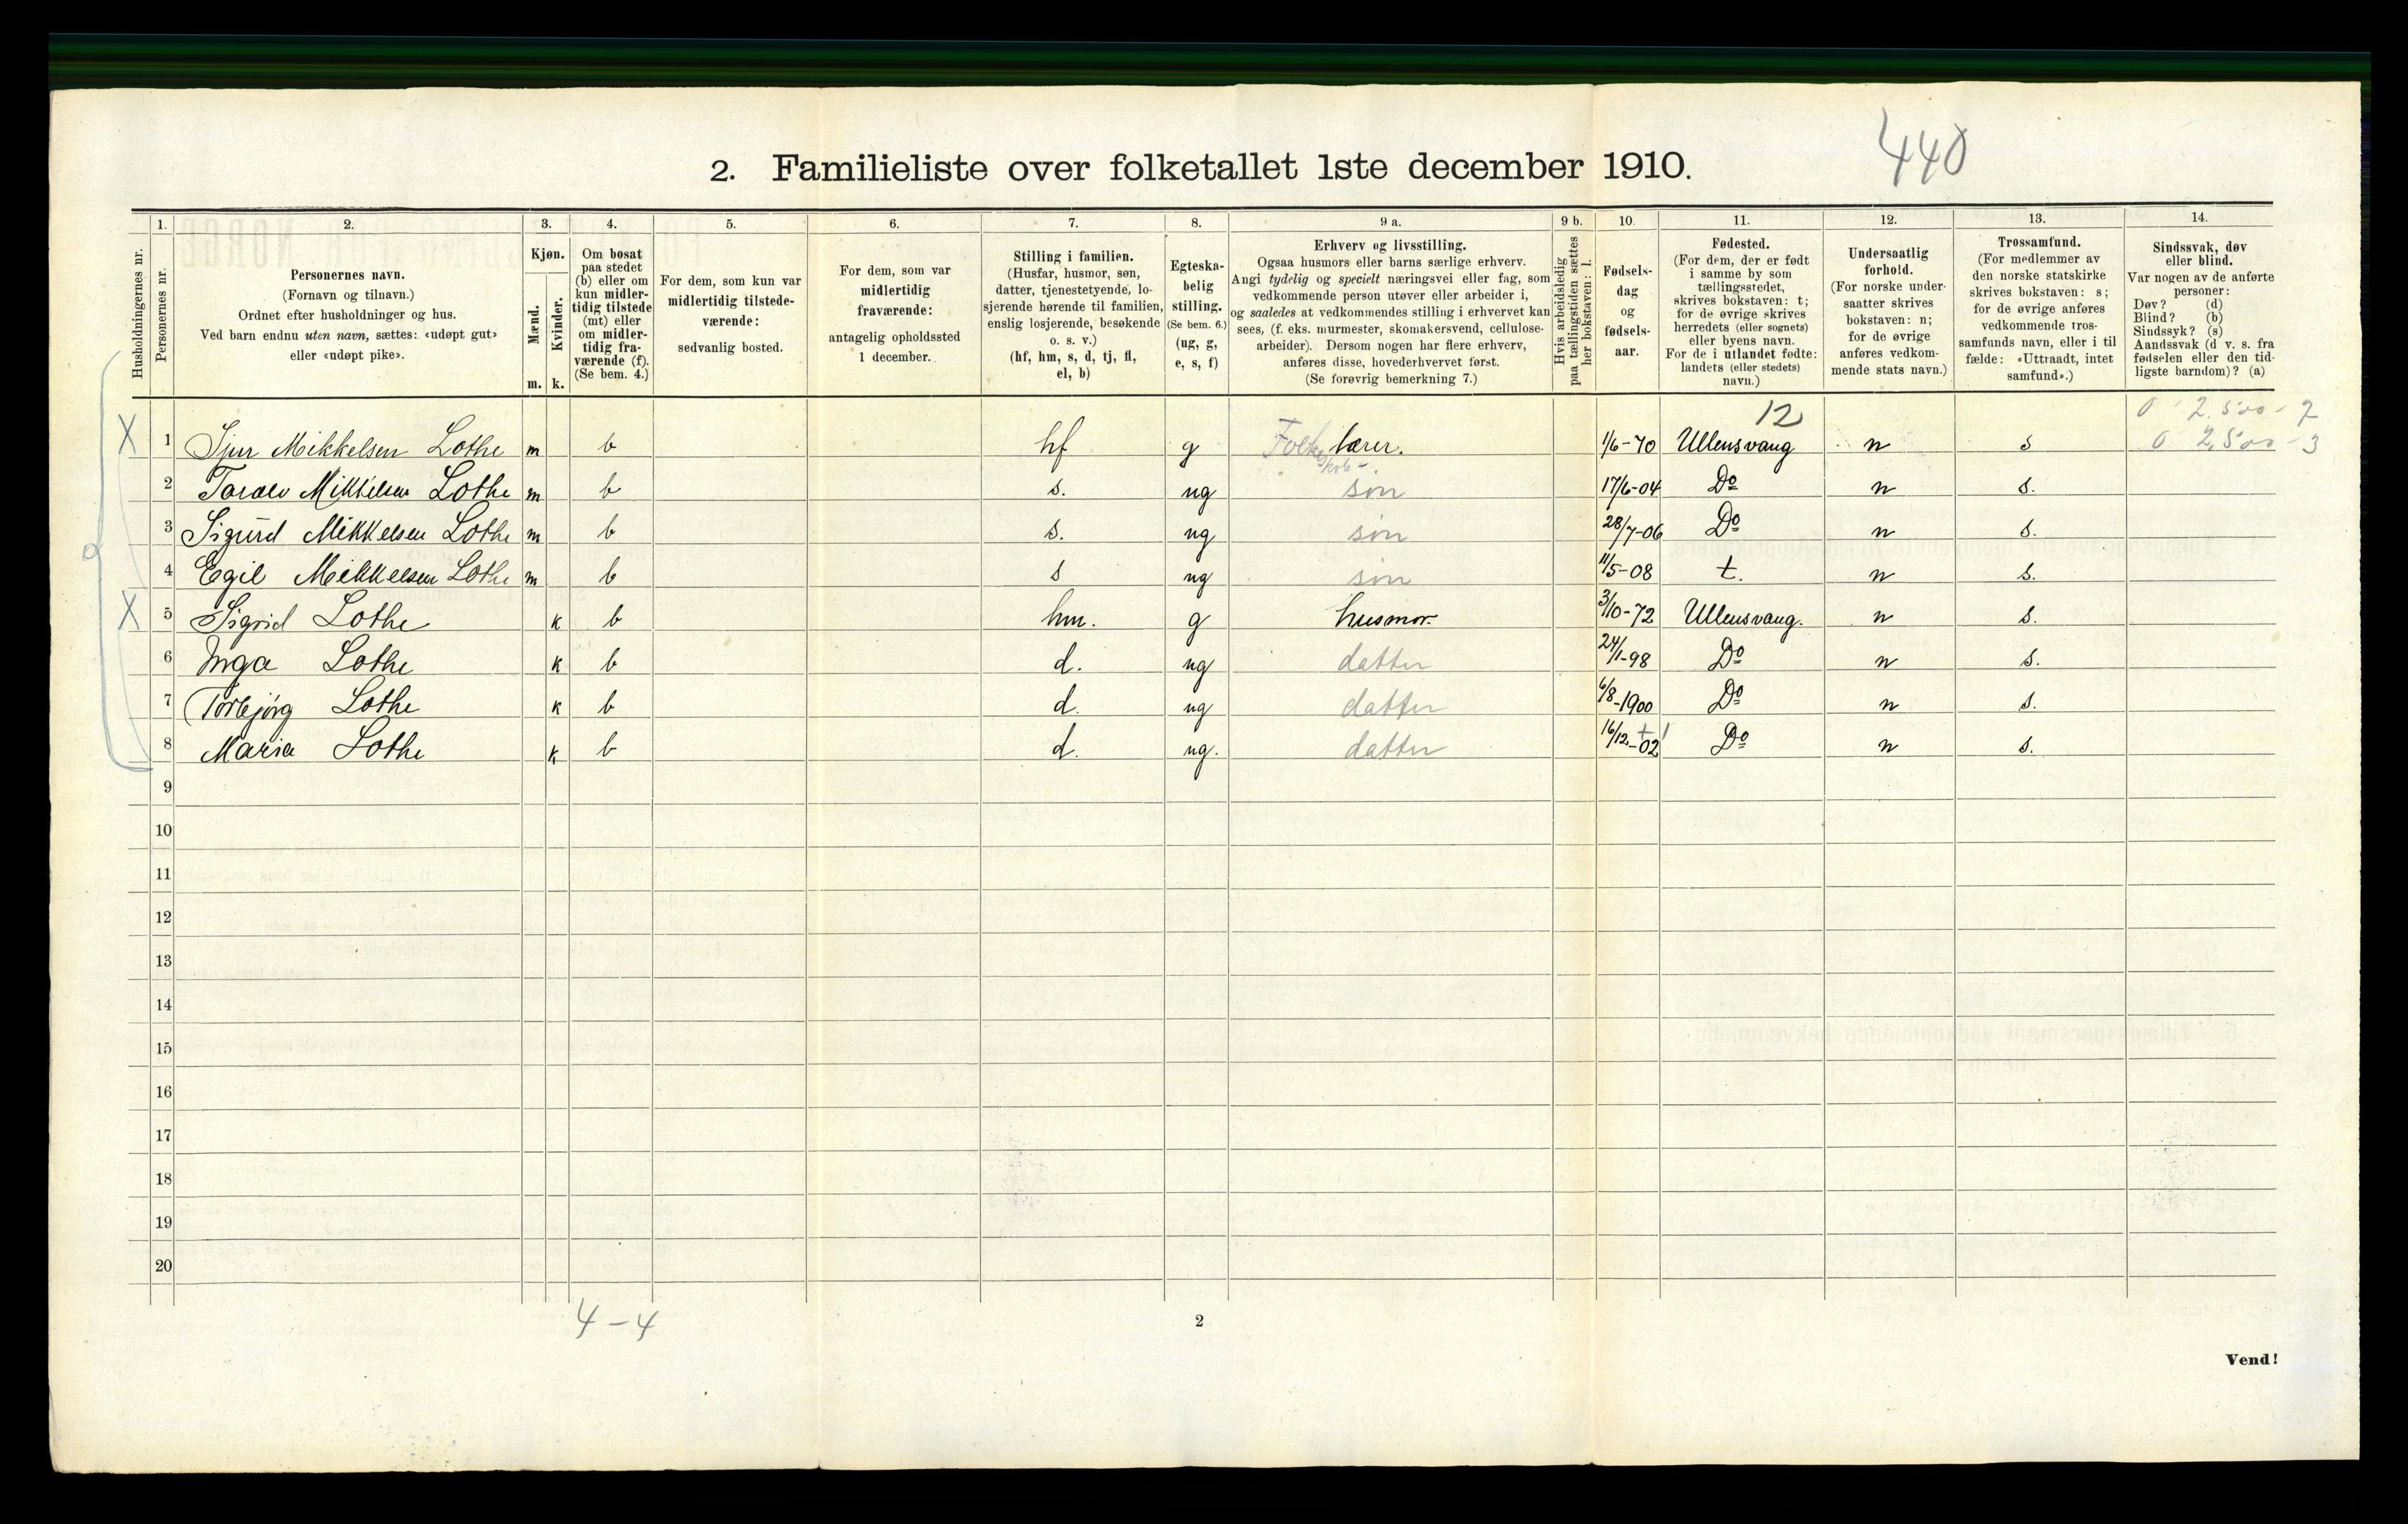 440
2. Familieliste over folketallet 1ste december 1910.
Husholdningernes nr.
1.
Personernes nr.
2.
Personernes navn.
(Fornavn og tilnavn.)
Ordnet efter husholdninger og hus.
Ved barn endnu uten navn, sættes: «udøpt gut»
eller «udøpt pike».
3.
Kjøn.
Mænd.
Kvinder.
m. k.
4.
Om bosat
paa stedet
(b) eller om
kun midler-
tidig tilstede
(mt) eller
om midler-
tidig fra-
værende (f).
(Se bem. 4.)
5.
For dem, som kun var
midlertidig tilstede-
værende:
sedvanlig bosted.
6.
For dem, som var
midlertidig
fraværende:
antagelig opholdssted
1 december.
7.
Stilling i familien.
(Husfar, husmor, søn,
datter, tjenestetyende, lo-
sjerende hørende til familien,
enslig losjerende, besøkende
o. s. v.)
(hf, hm, s, d, tj, fl,
el, b)
8.
Egteska-
belig
stilling.
(Se bem. 6.)
(ug, g,
e, s, f)
9 a.
Erhverv og livsstilling.
Ogsaa husmors eller barns særlige erhverv.
Angi tydelig og specielt næringsvei eller fag, som
vedkommende person utøver eller arbeider i,
og saaledes at vedkommendes stilling i erhvervet kan
sees, (f. eks. murmester, skomakersvend, cellulose-
arbeider). Dersom nogen har flere erhverv,
anføres disse, hovederhvervet først.
(Se forøvrig bemerkning 7.)
9 b.
Hvis arbeidsledig
paa tællingstiden sættes
her bokstaven: l.
10.
Fødsels-
dag
og
fødsels-
aar.
11.
Fødested.
(For dem, der er født
i samme by som
tællingsstedet,
skrives bokstaven: t;
for de øvrige skrives
herredets (eller sognets)
eller byens navn.
For de i utlandet fødte:
landets (eller stedets)
navn.)
12.
Undersaatlig
forhold.
(For norske under-
saatter skrives
bokstaven: n;
for de øvrige
anføres vedkom-
mende stats navn.)
13.
Trossamfund.
(For medlemmer av
den norske statskirke
skrives bokstaven: s;
for de øvrige anføres
vedkommende tros-
samfunds navn, eller i til
fælde: «Uttraadt, intet
samfund».)
14.
Sindssvak, døv
eller blind.
Var nogen av de anførte
personer:
Døv? (d)
Blind? (b)
Sindssyk? (s)
Aandssvak (d v. s. fra
fødselen eller den tid-
ligste barndom)? (a)
12 0 2.500 - 2
X 1 Sjur Mikkelsen Lothe m b hf g Folkeskole- lærer. 1/6-70 Ullensvang n s 0 2,500 - 3
2 Mikkelsen Lothe m b s. ug søn 17/6-04 Do n s.
3 Sigurd Mikkelsen Lothe m b s. ug søn 28/7-06 Do n s.
4 Egil Mikkelsen Lothe m b s ug søn 11/5-08 t. n s.
X 5 Sigrid Lothe k b hm. g husmor. 3/10-72 Ullensvang. n s.
6 Inga Lothe k b d. ug datter 24/1-98 Do n s.
7 Torbjörg Lothe k b d. ug datter 6/8-1900 Do n s.
8 Maria Lothe k b d. ug. datter 16/12-02 Do n s.
9
10
11
12
13
14
15
16
17
18
19
20
4-4
2
Vend!